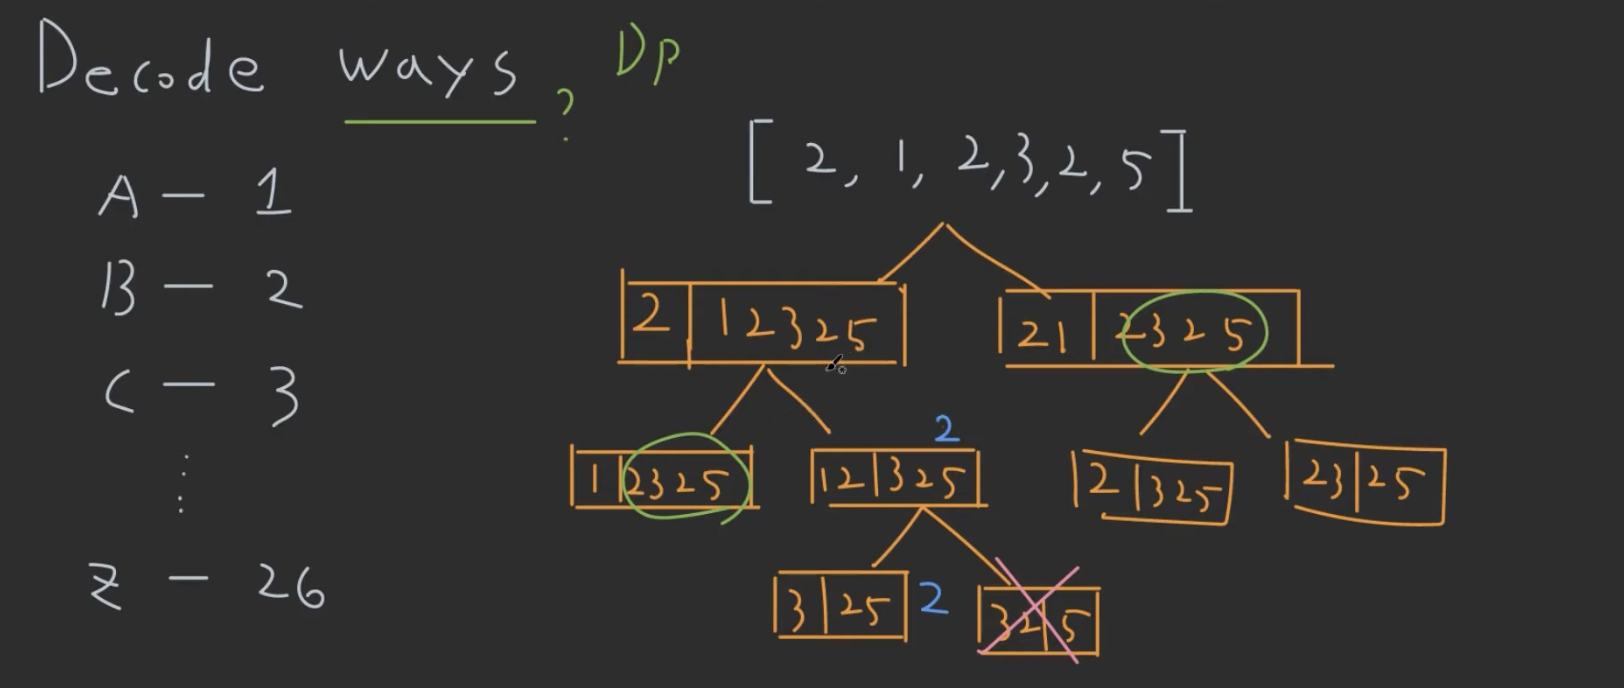 Decode ways ? DP
[ 2, 1, 2, 3, 2, 5 ]
A — 1
B — 2
C — 3
⋮
Z — 26
2 | 1 2 3 2 5
21 | 2 3 2 5
1 | 2 3 2 5
2
12 | 3 2 5
2 | 3 2 5
23 | 2 5
3 | 2 5
2
32 | 5